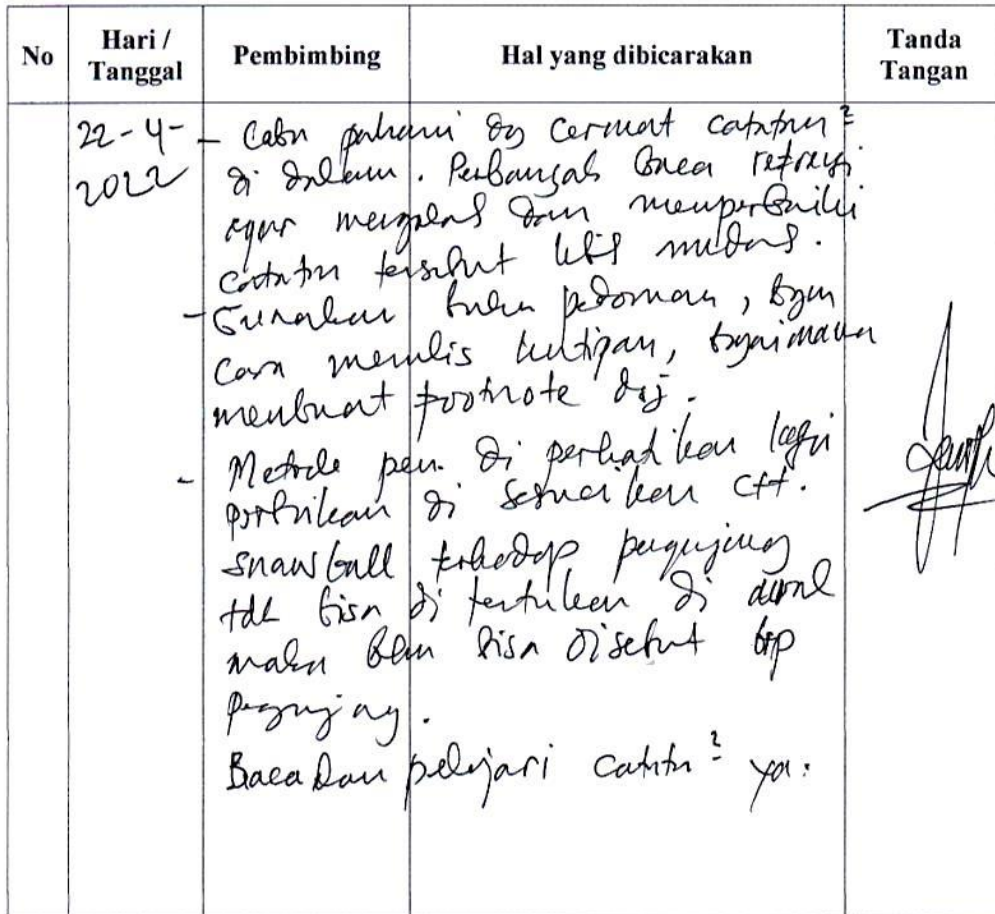 No
Hari / Tanggal
Pembimbing
Hal yang dibicarakan
Tanda Tangan
22-4-2022
- Coba pahami dg cermat catatan²
di dalam. Perbanyak baca referensi
agar mengenal dan memperbaiki
catatan tersebut lebih mudah.
- Gunakan buku pedoman, bgm
cara menulis kutipan, bgaimana
membuat footnote dsj.
- Metode pen. di perhatikan lagi
perbaikan di sesuaikan ctt.
snawball terhadap pengunjung
tdk bisa di tentukan di awal
maka blm bisa disebut brp
pengunjung.
Baca dan pelajari catatn² ya.